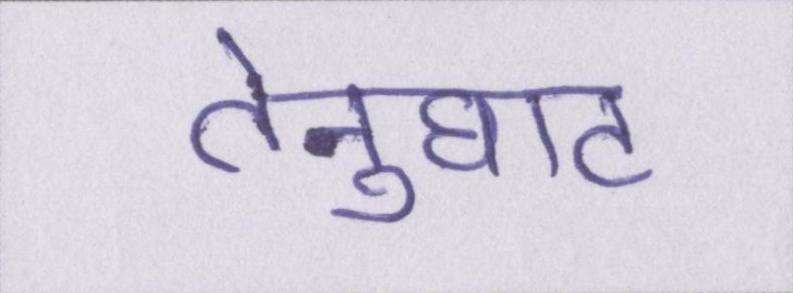 तेनुघाट